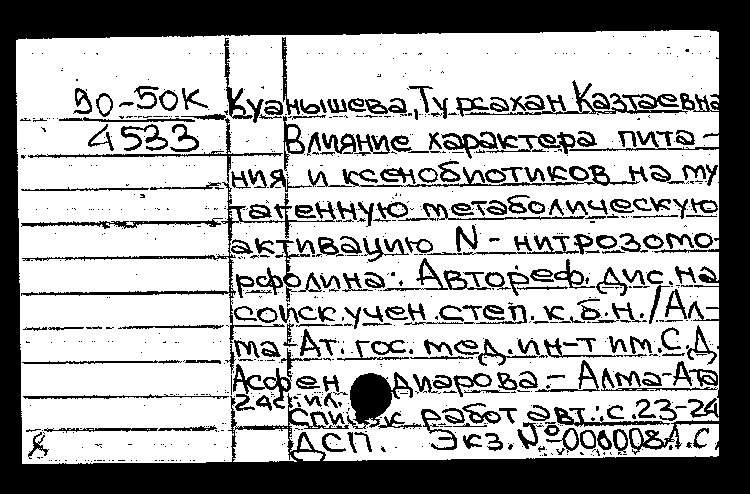 90-50К Куанышева, Турсахан Казтаевна
4533 Влияние характера пита-
ния и ксенобиотиков на му
тагенную метаболическую
активацию N-нитрозомо-
рфолина: Автореф. дис. на
соиск. учен. степ. к.б.н. / Ал-
ма-Ат. гос. мед. ин-т им. С.Д.
Асфендиарова. - Алма-Ата
24с. ил.
Список работ авт.: с. 23-24
ДСП. Экз. № 000008